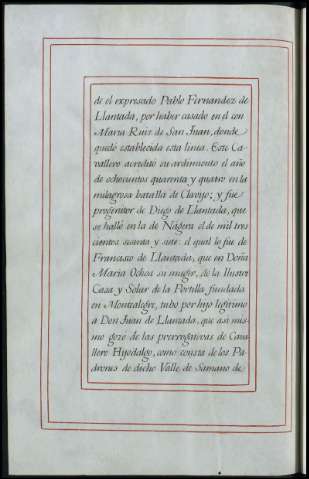 de el expresado Pablo Fernandez de
Llantada, por haber casado en el con
Maria Ruiz de San Juan, donde
quedó establecida esta linea. Este Ca-
vallero acreditó su ardimiento el año
de ochocientos quarenta y quatro en la
milagrosa batalla de Clavijo; y fue
progenitor de Diego de Llantada, que
se halló en la de Nágera el de mil tres
cientos sesenta y siete: el qual lo fue de
Francisco de Llantada, que en Doña
Maria Ochoa su muger, de la Ilustre
Casa y Solar de la Portilla fundada
en Montealegre, tubo por hijo legitimo
a Don Juan de Llantada, que asi mis-
mo gozó de las prerrogativas de Cava
llero Hijodalgo, como consta de los Pa-
drones de dicho Valle de Samano de